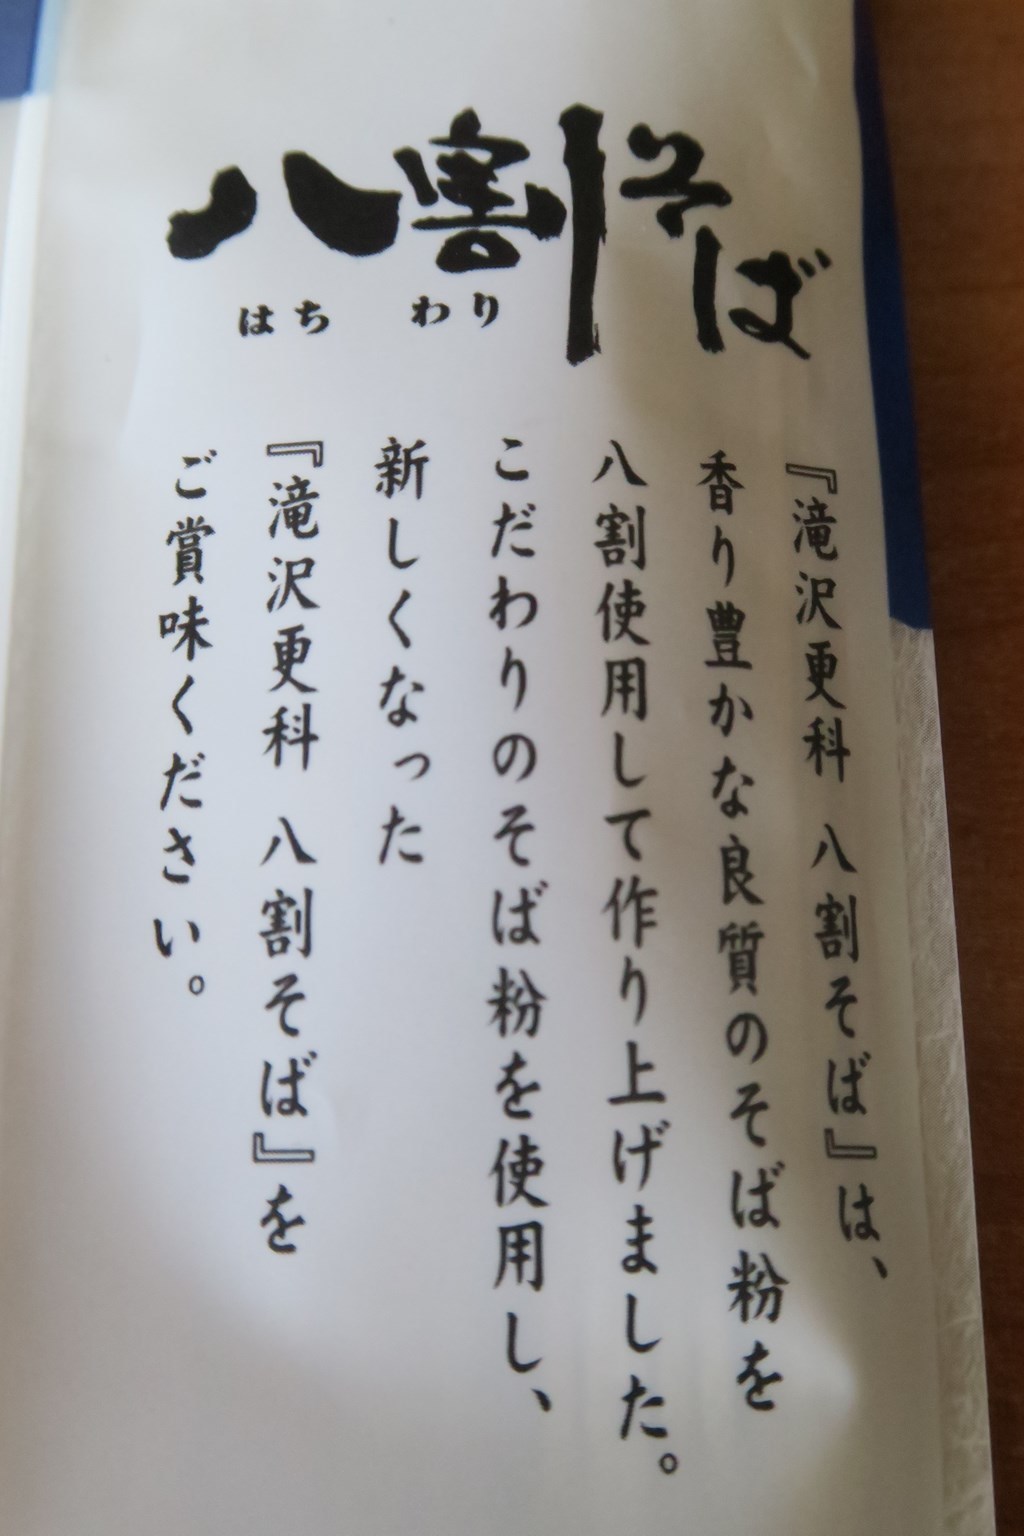 八割そば
はち わり
『滝沢更科 八割そば』は、
香り豊かな良質のそば粉を
八割使用して作り上げました。
こだわりのそば粉を使用し、
新しくなった
『滝沢更科 八割そば』を
ご賞味ください。